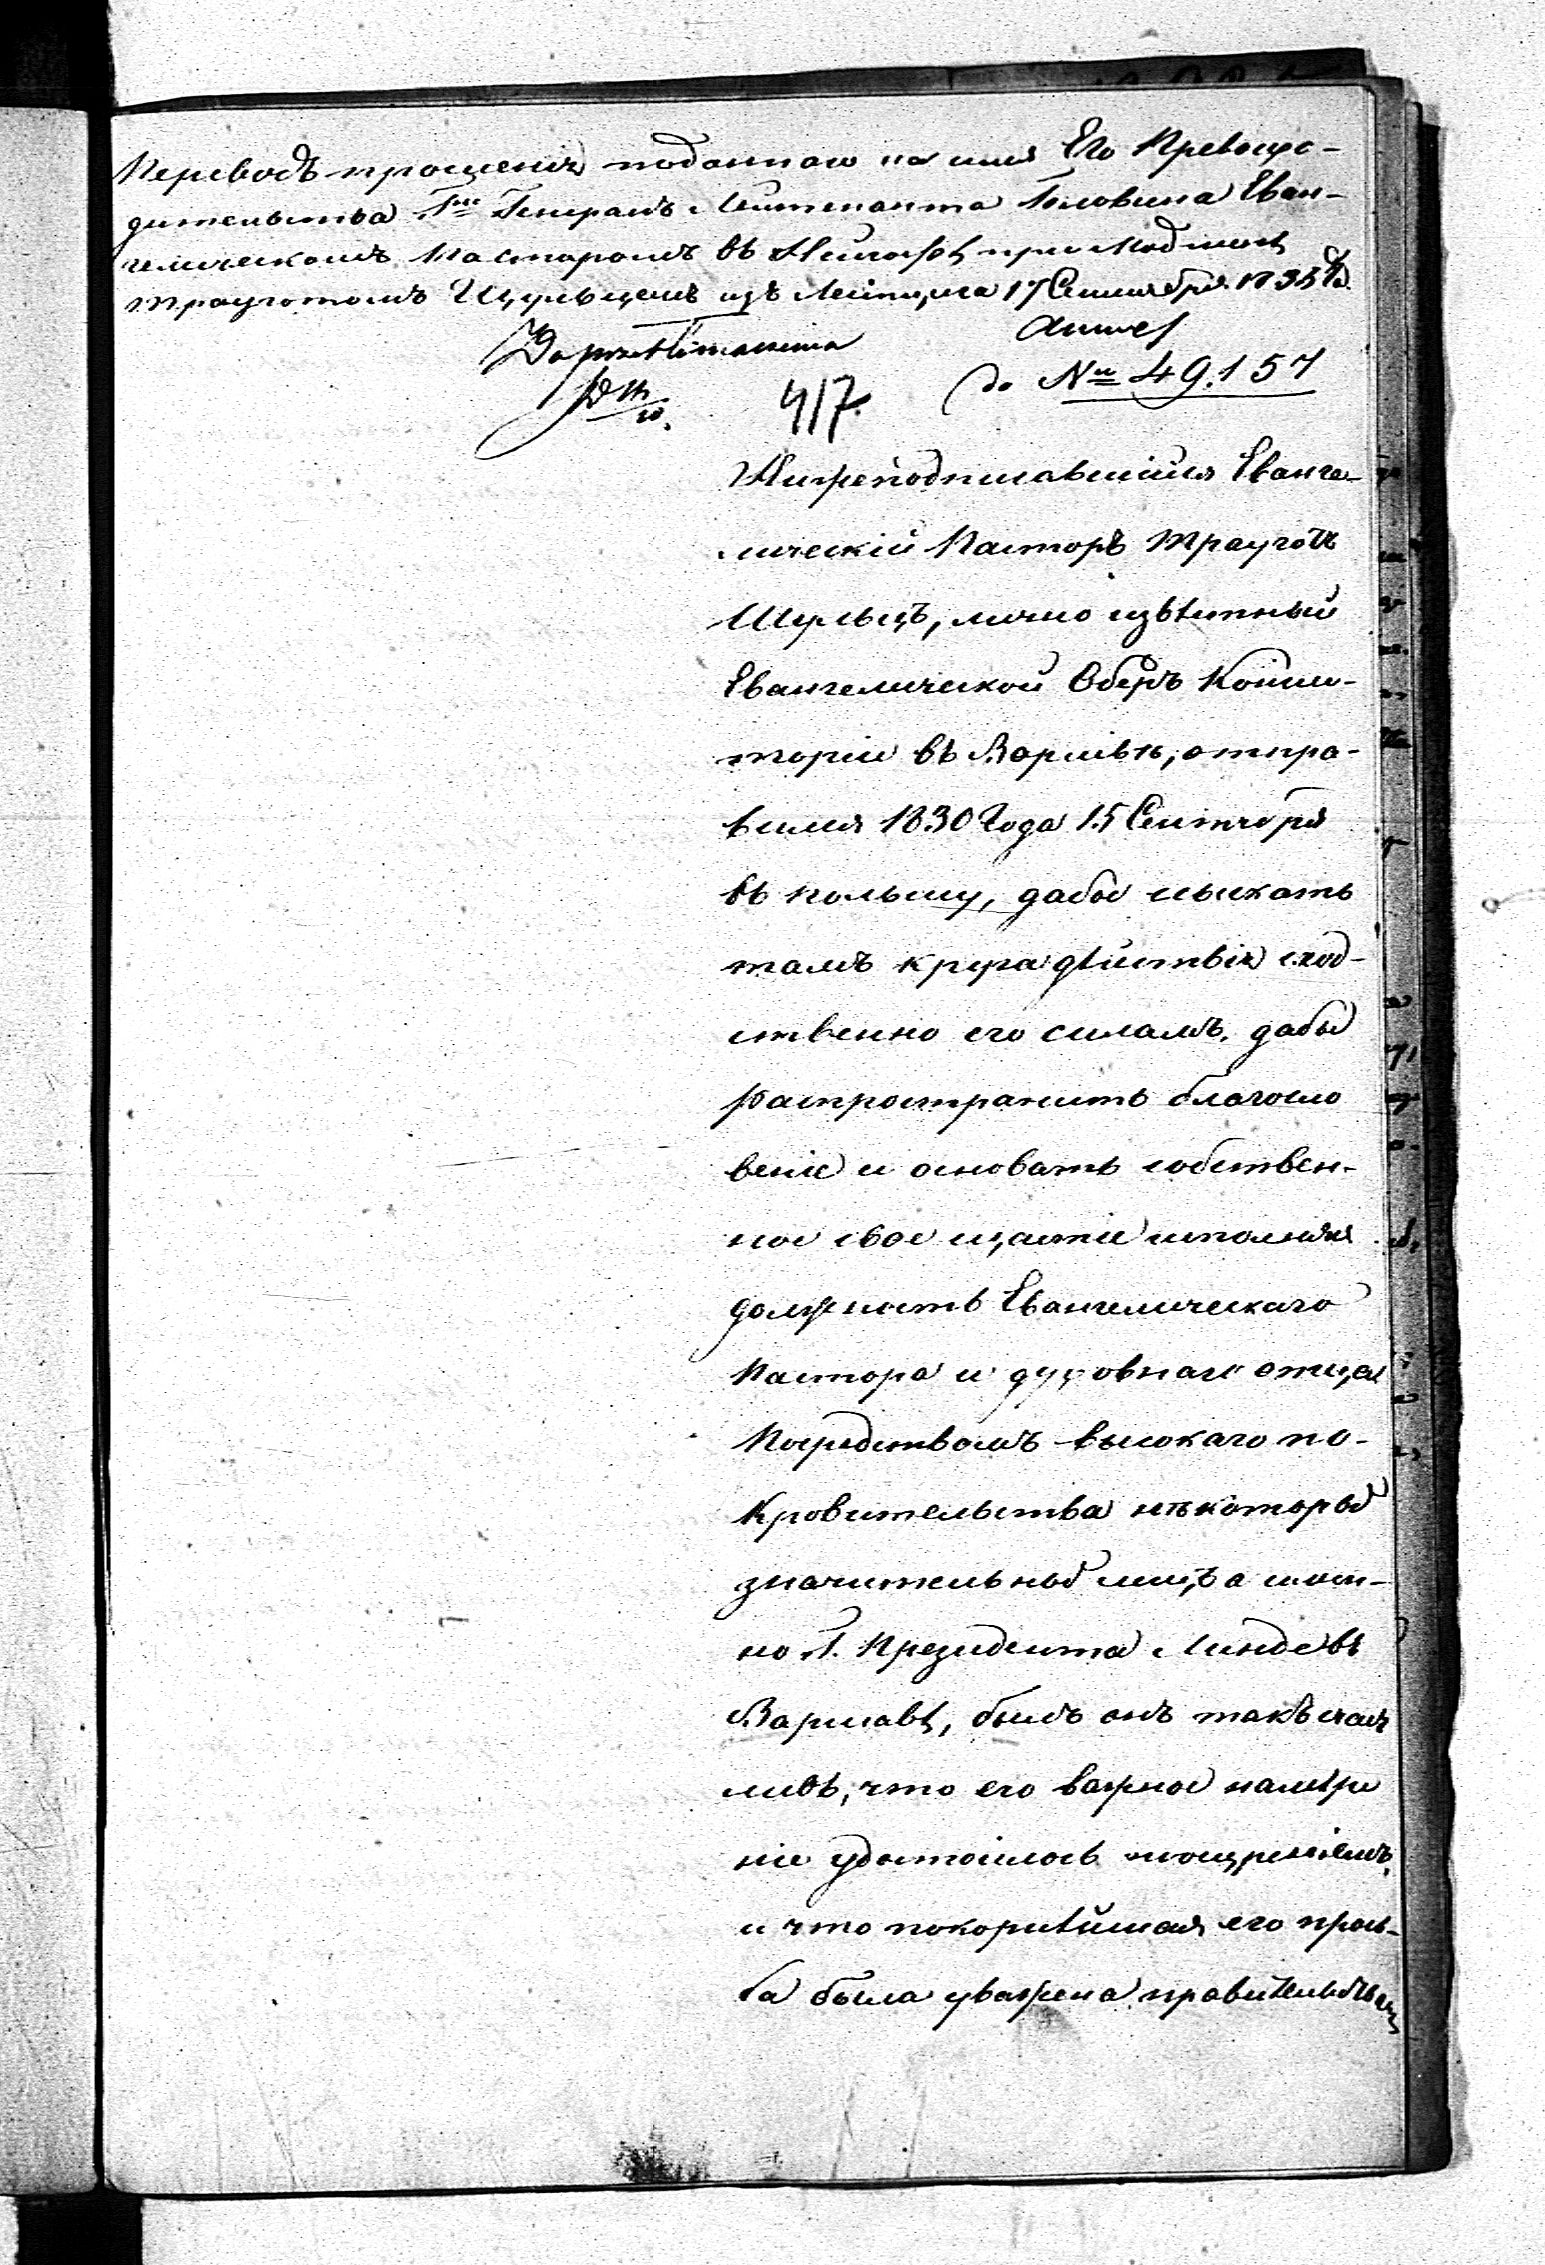 Переводъ прошенія поданнаго на имя Его Превосхо-
дительства Гна Генералъ Лейтенанта Головина Еван-
гелическомъ Пасторомъ въ при
Трауготомъ Шульцемъ изъ Лейпцига 17 Сентября 1835 г.
Annex
do No 49.157
417.
Нижеподписавшійся Еванге-
лическій Пасторъ Трауготъ
Шульцъ, лично извѣстный
Евангелической Оберъ Консис-
торіи въ Варшавѣ, отпра-
вился 1830 Года 15 Сентября
въ польшу, дабы сыскать
тамъ круга дѣйствія сход-
ственно его силамъ, дабы
Распространить благосло
веніе и основать собствен-
ное свое щастіе исполняя
должность Евангелическаго
Пастора и духовнаго отца
Посредствомъ высокаго по-
Кровительства нѣкоторыхъ
значительныхъ лицъ а имен-
но Г. Президента Линде въ
Варшавѣ, былъ онъ такъ счаст
ливъ, что его важное намѣре
ніе удостоилось поощреніемъ,
и что покорнѣйшая его прось-
ба была уважена правительствомъ